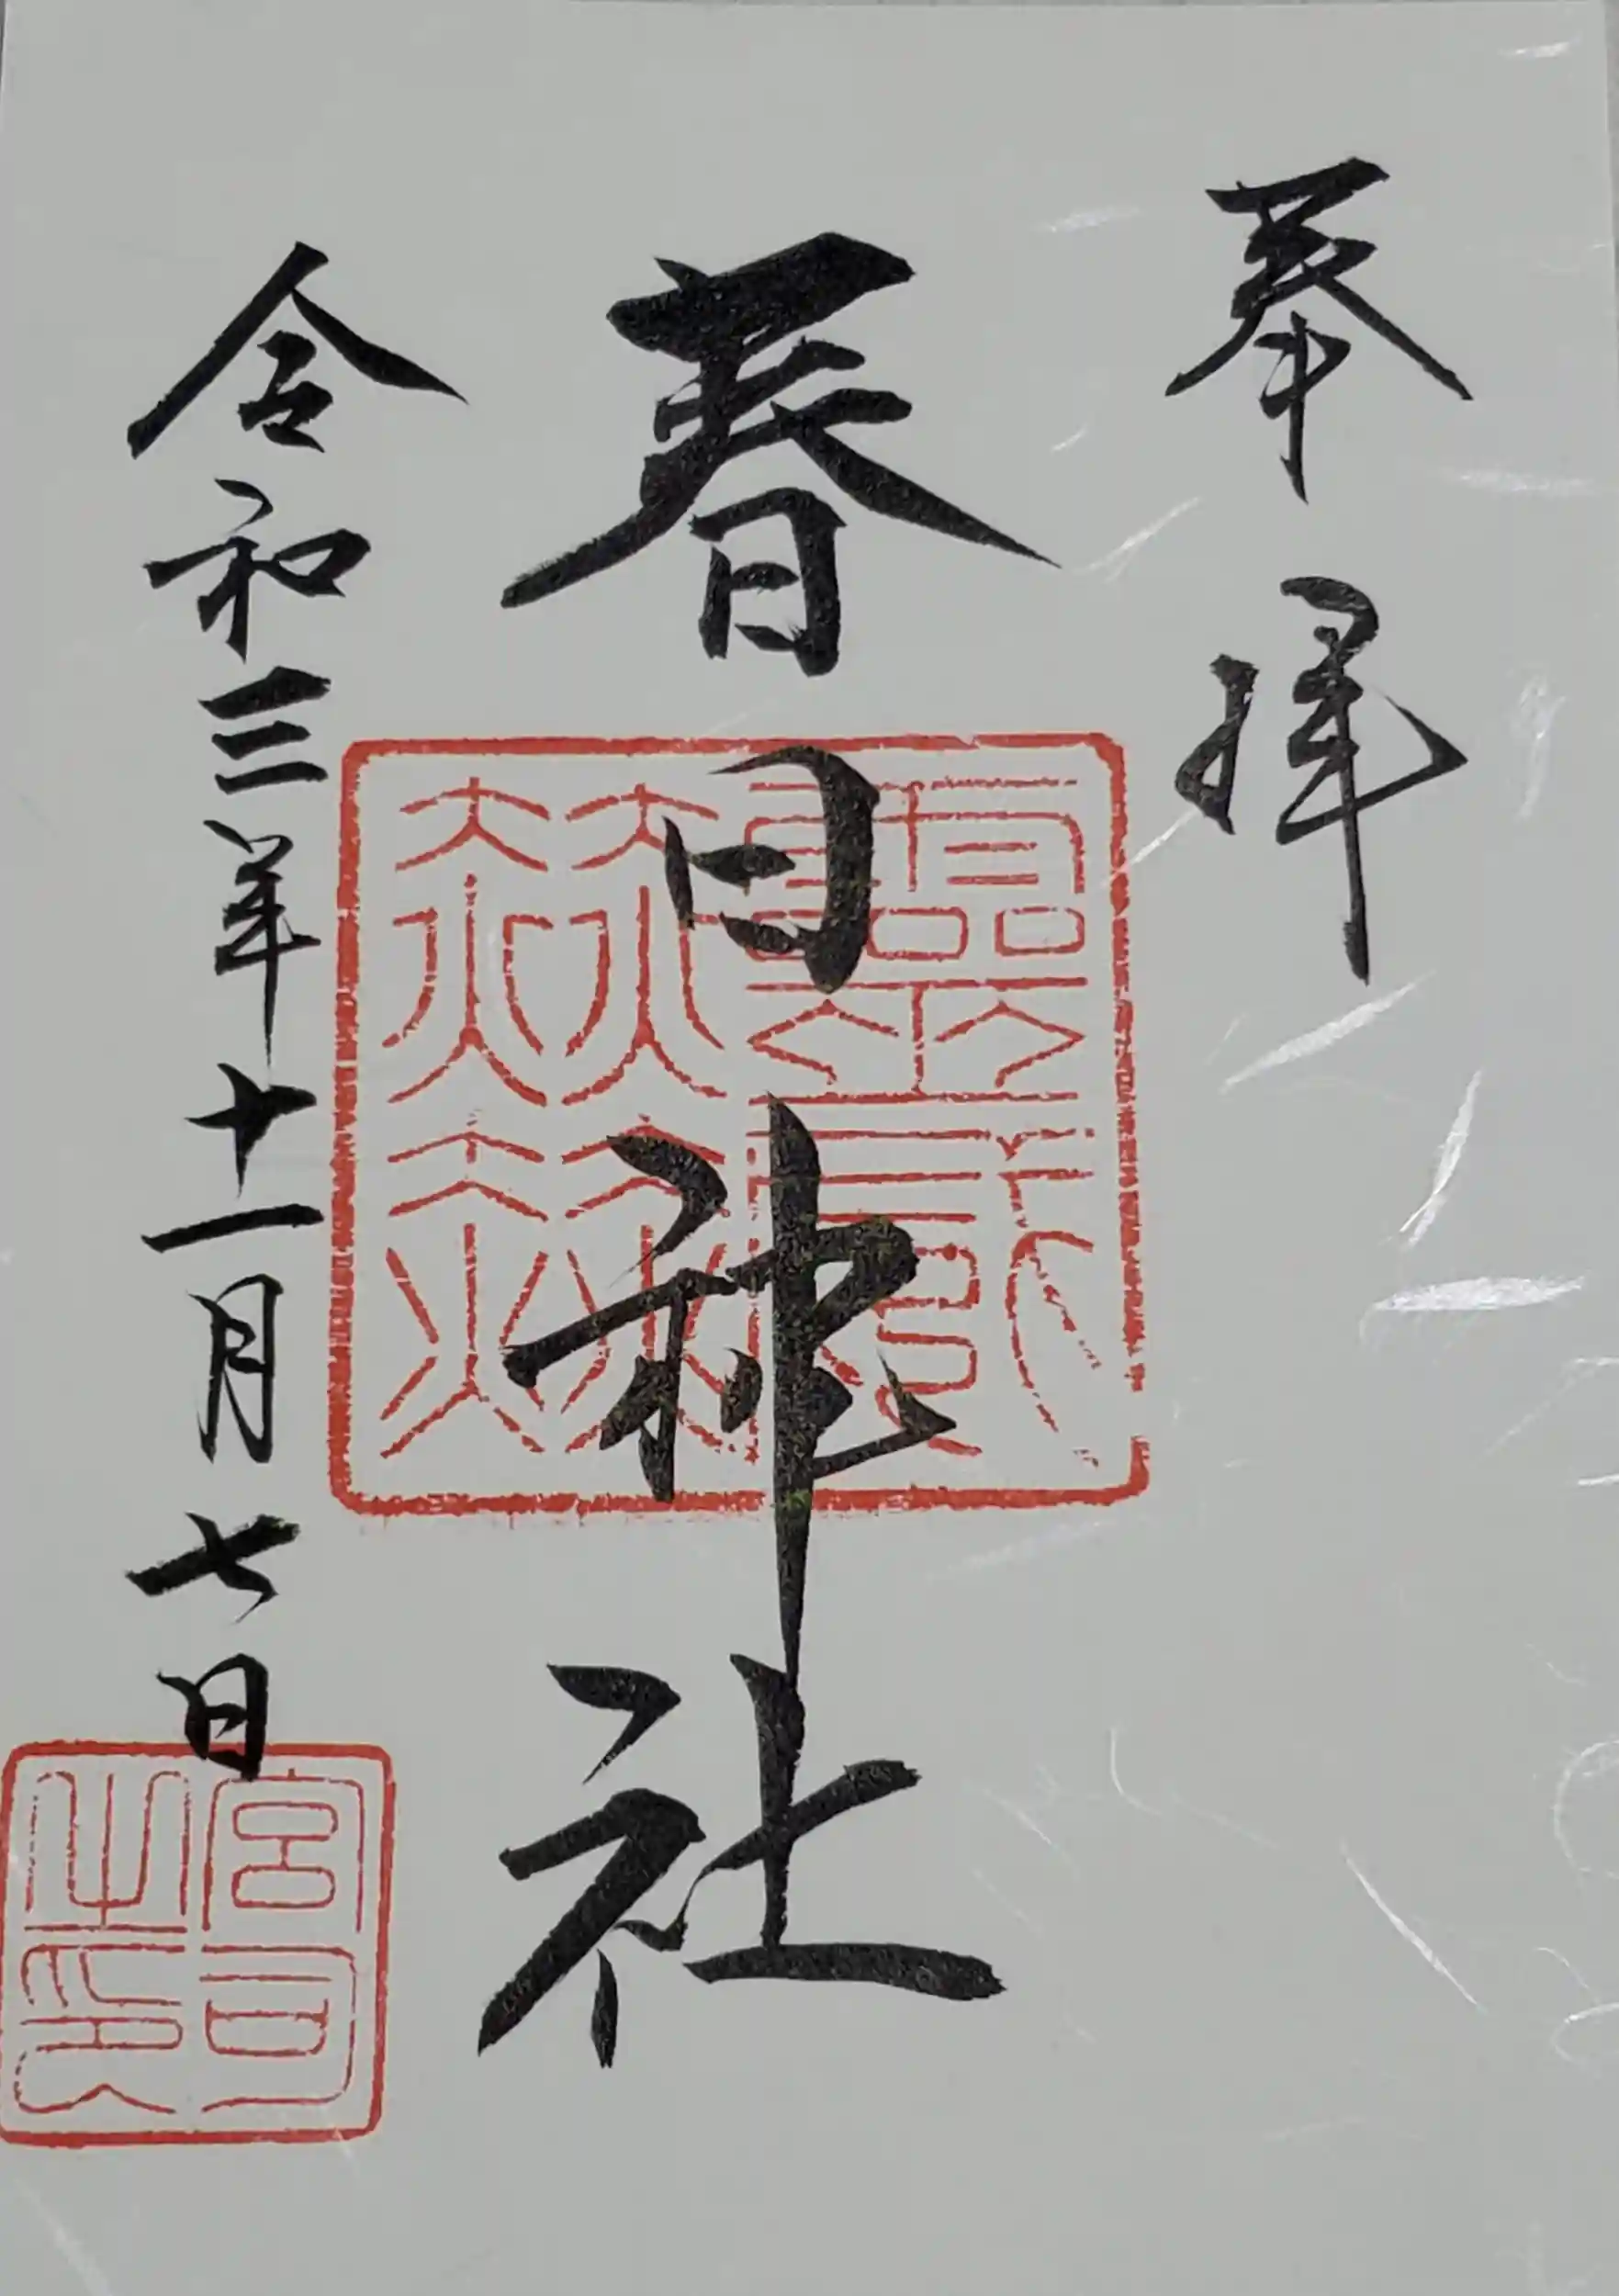 奉拝
春日神社
令和三年十一月七日
宮司之印